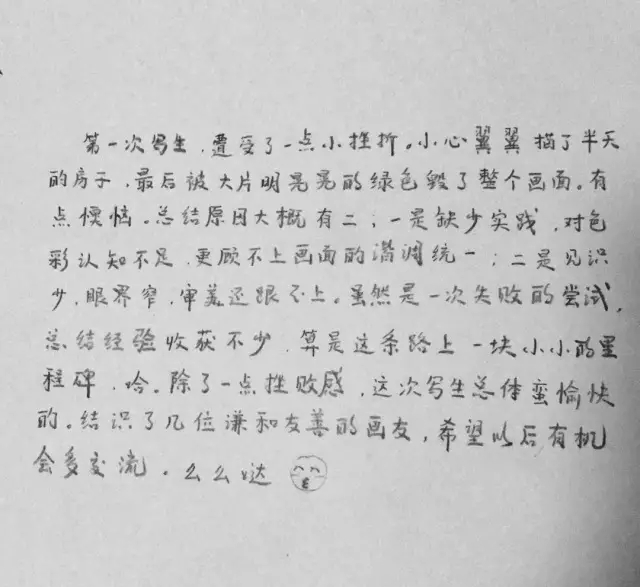 第一次写生，遭受了一点小挫折。小心翼翼描了半天
的房子，最后被大片明晃晃的绿色毁了整个画面。有
点懊恼。总结原因大概有二：一是缺少实践，对色
彩认知不足，更顾不上画面的谐调统一；二是见识
少，眼界窄，审美还跟不上。虽然是一次失败的尝试，
总结经验收获不少，算是这条路上一块小小的里
程碑，哈。除了一点挫败感，这次写生总体蛮愉快
的。结识了几位谦和友善的画友，希望以后有机
会多交流。么么哒